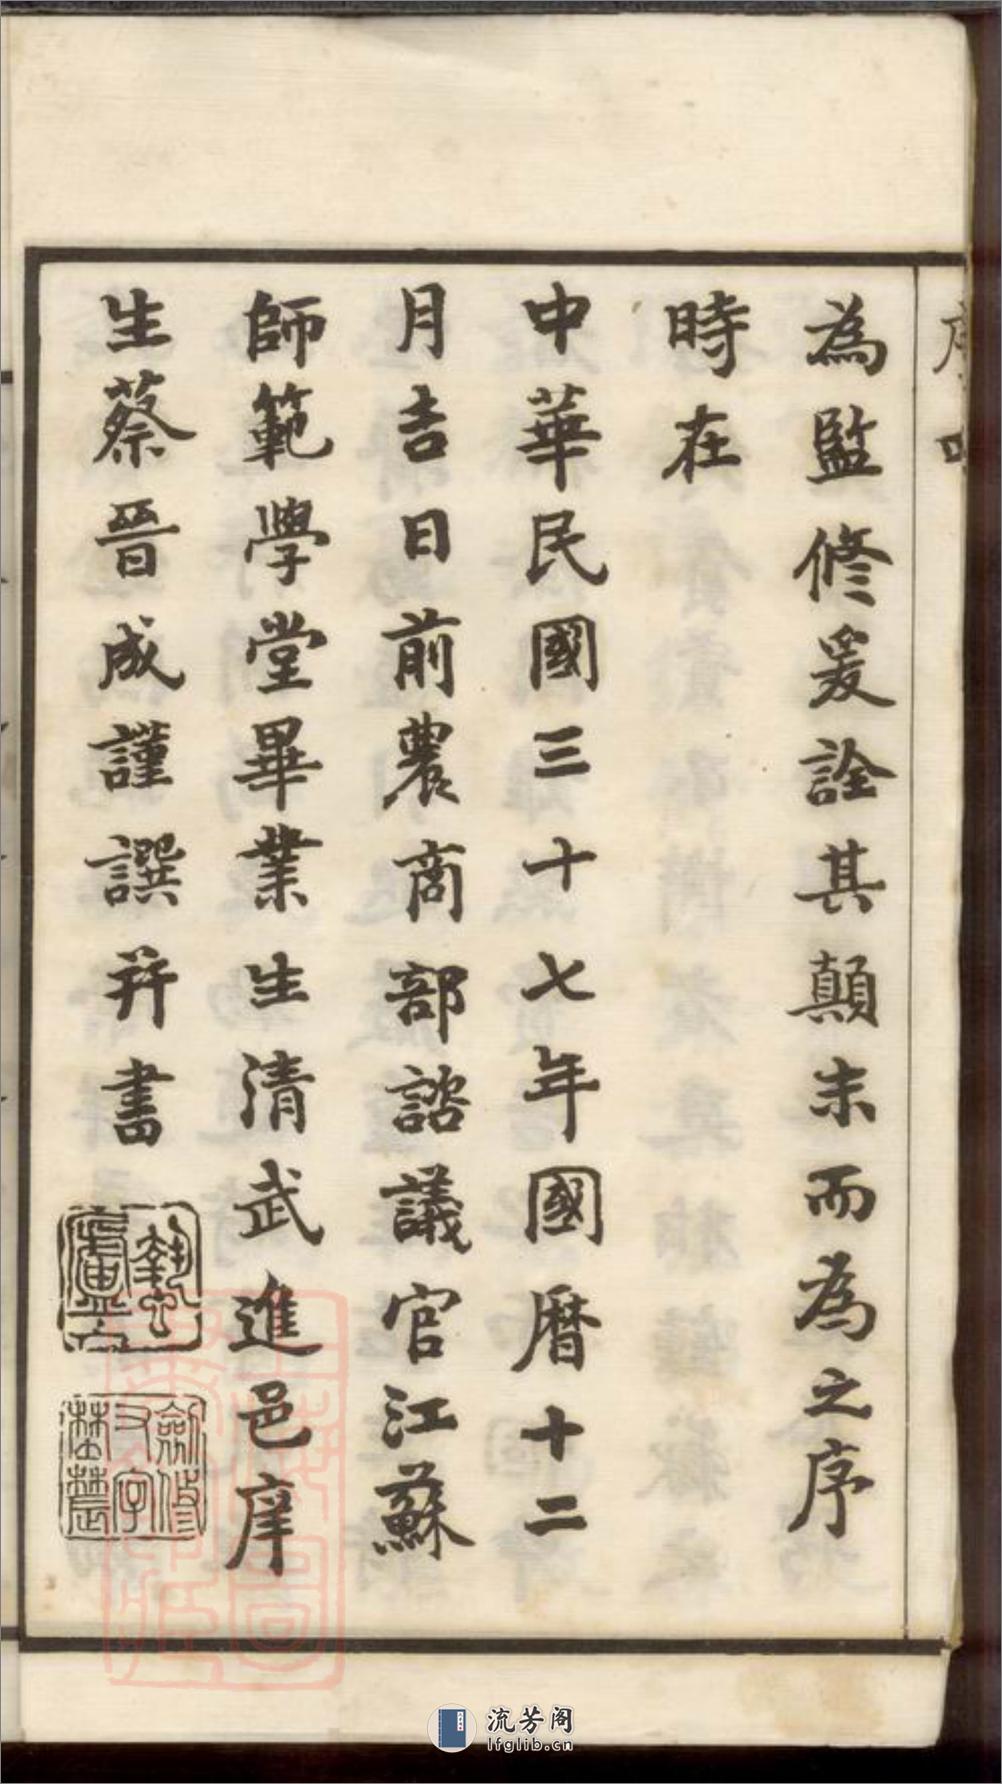 為監修爰詮其顛末而為之序
時在
中華民國三十七年國曆十二
月吉日前農商部諮議官江蘇
師範學堂畢業生清武進邑庠
生蔡晉成謹譔并書
流芳阁
lfglib.cn